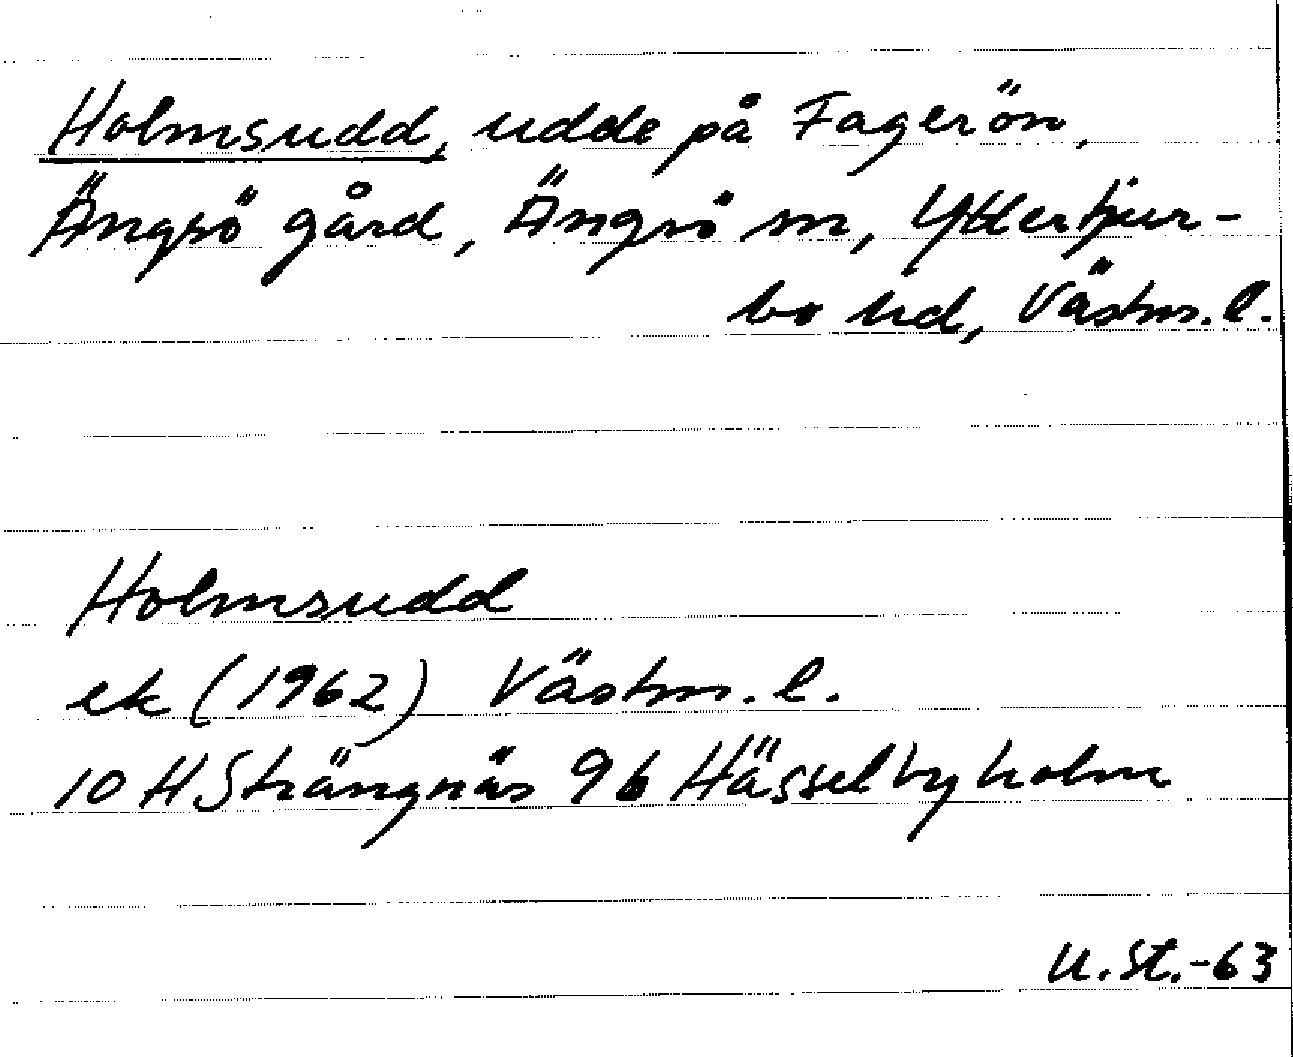 Holmsudd, udde på Fagerön,
Ängsö gård, Ängsö sn, Yttertjur-
bo hd, Västm. l.
Holmsudd
ek (1962) Västm. l.
10 H Strängnäs 9b Hässelbyholm
U. St. -63